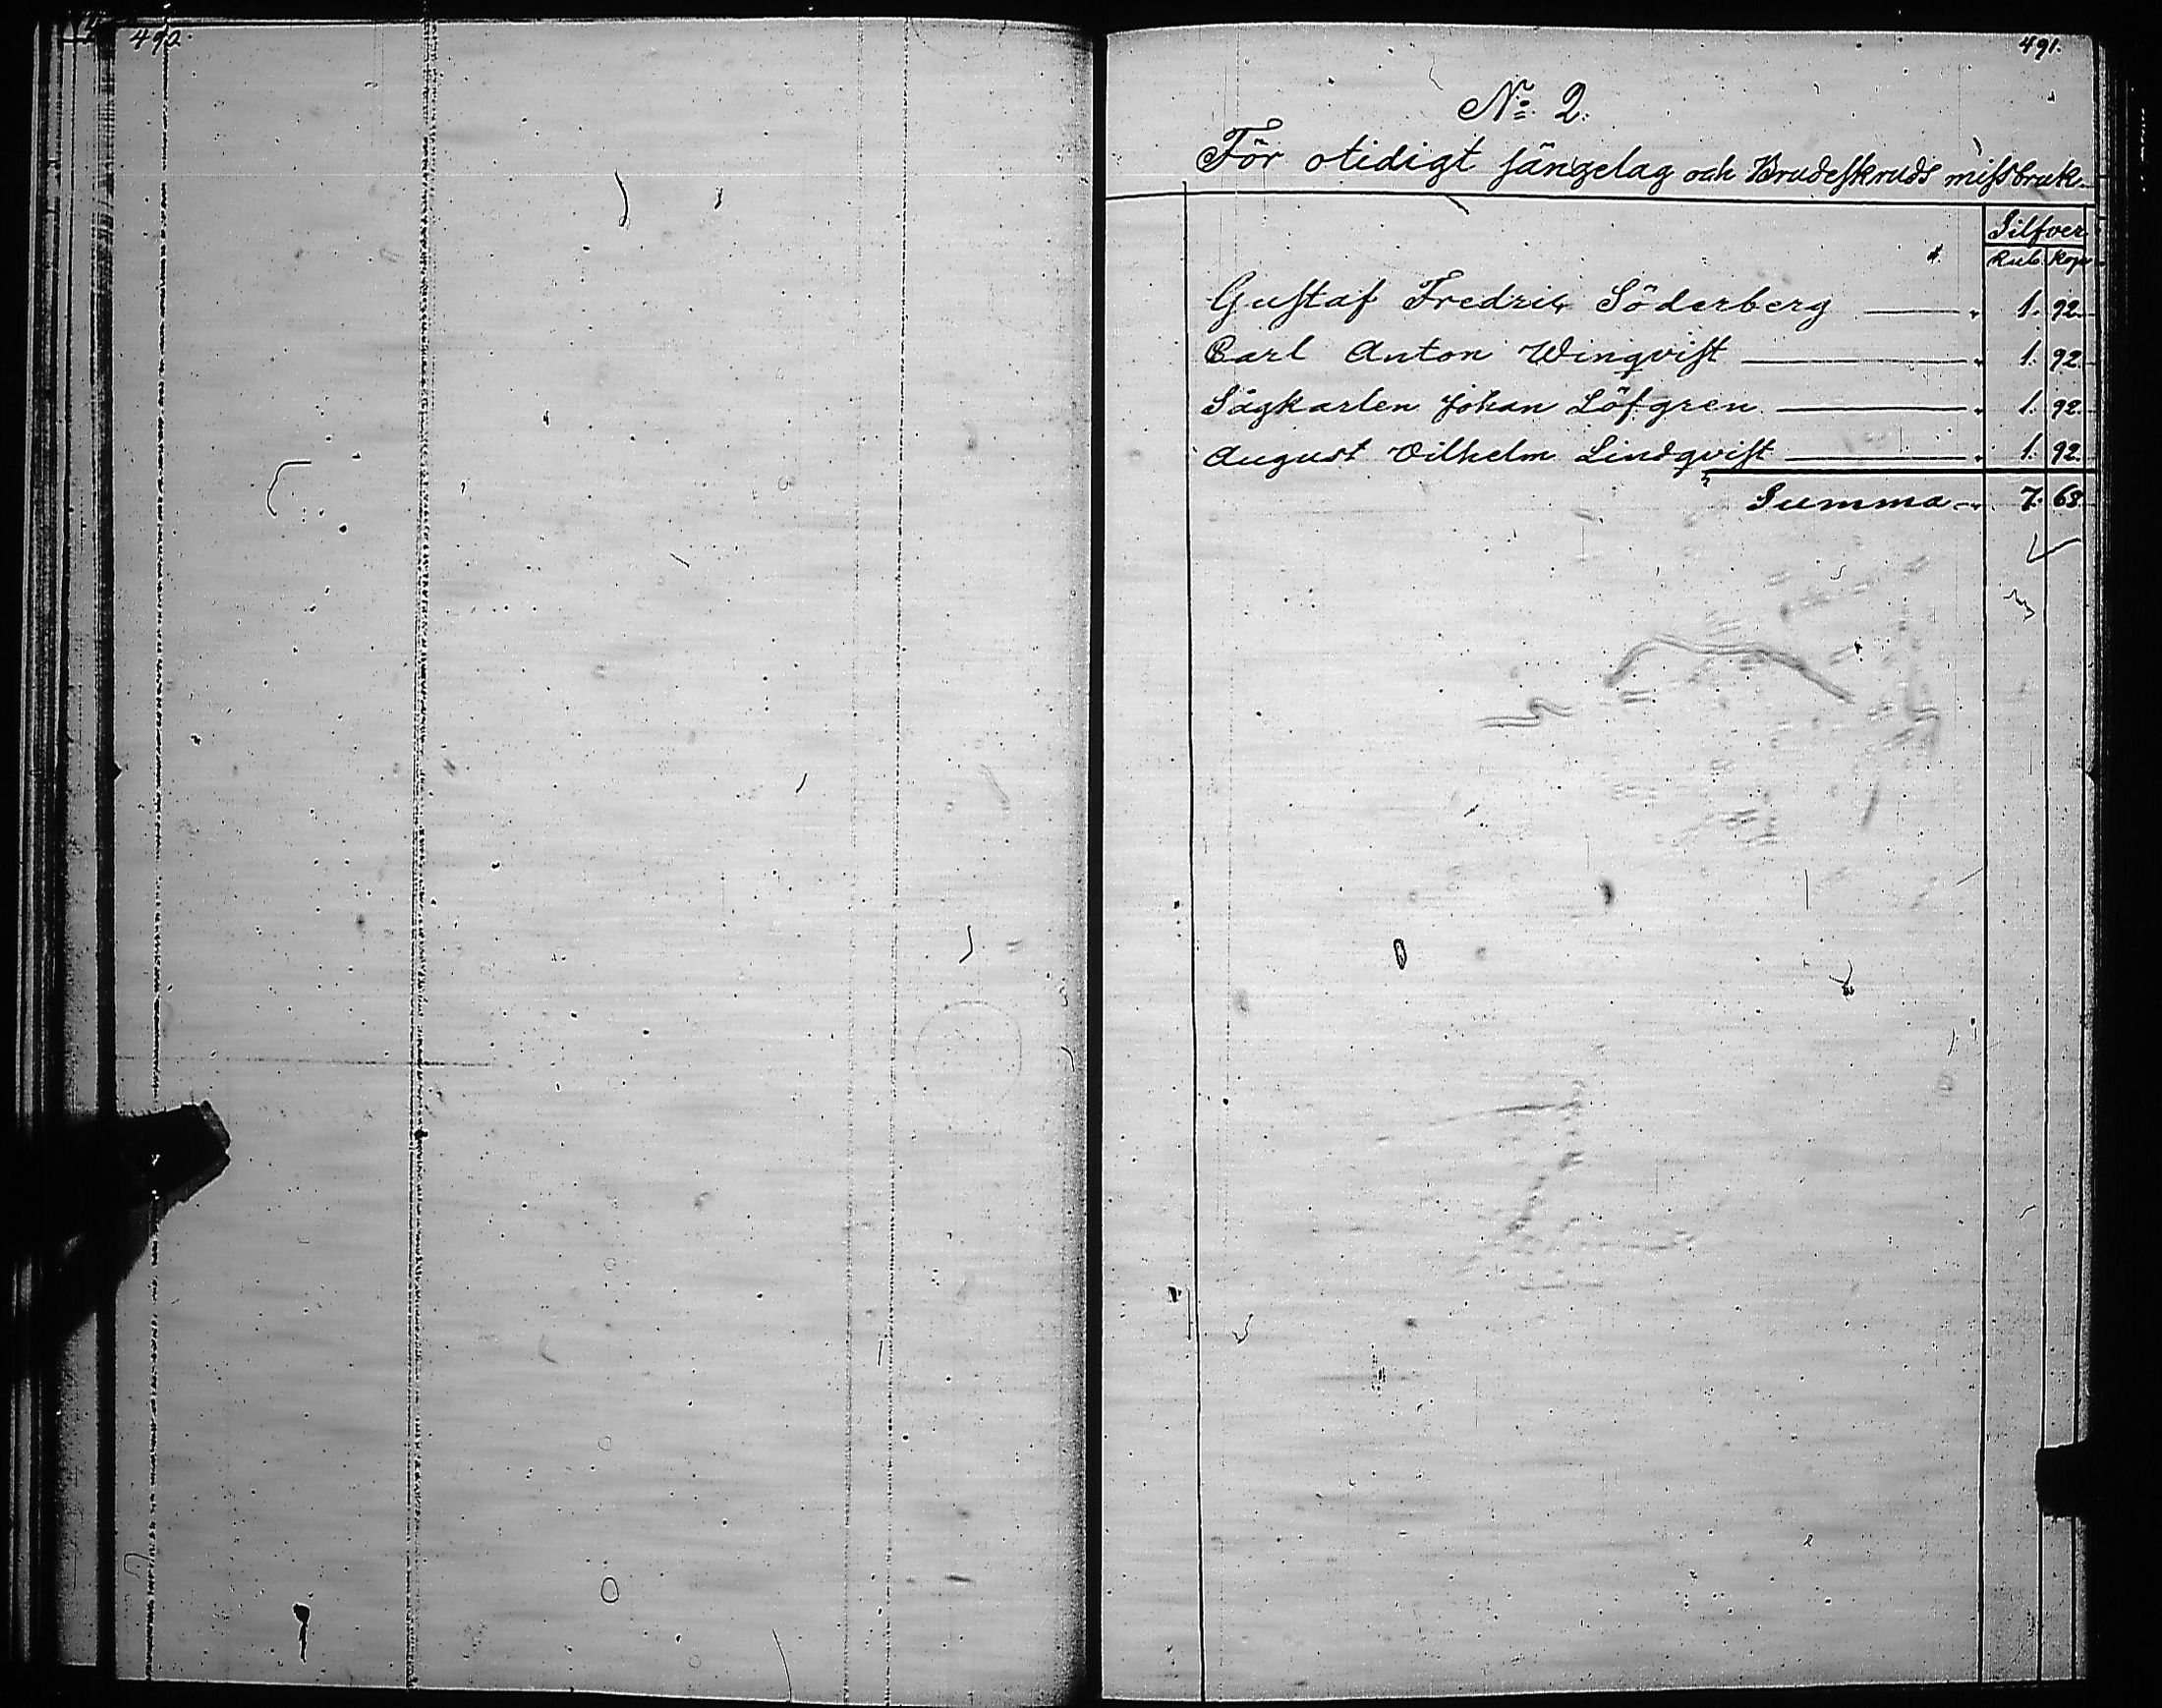 490.
491.
No. 2.
För otidigt sängelag och Brudeskruds missbruk.
Silfver
Rub. Kop.
Gustaf Fredric Söderberg 1. 92.
Carl Anton Winqvist 1. 92.
Sågkarlen Johan Löfgren 1. 92.
August Vilhelm Lindqvist 1. 92.
Summa 7. 68.